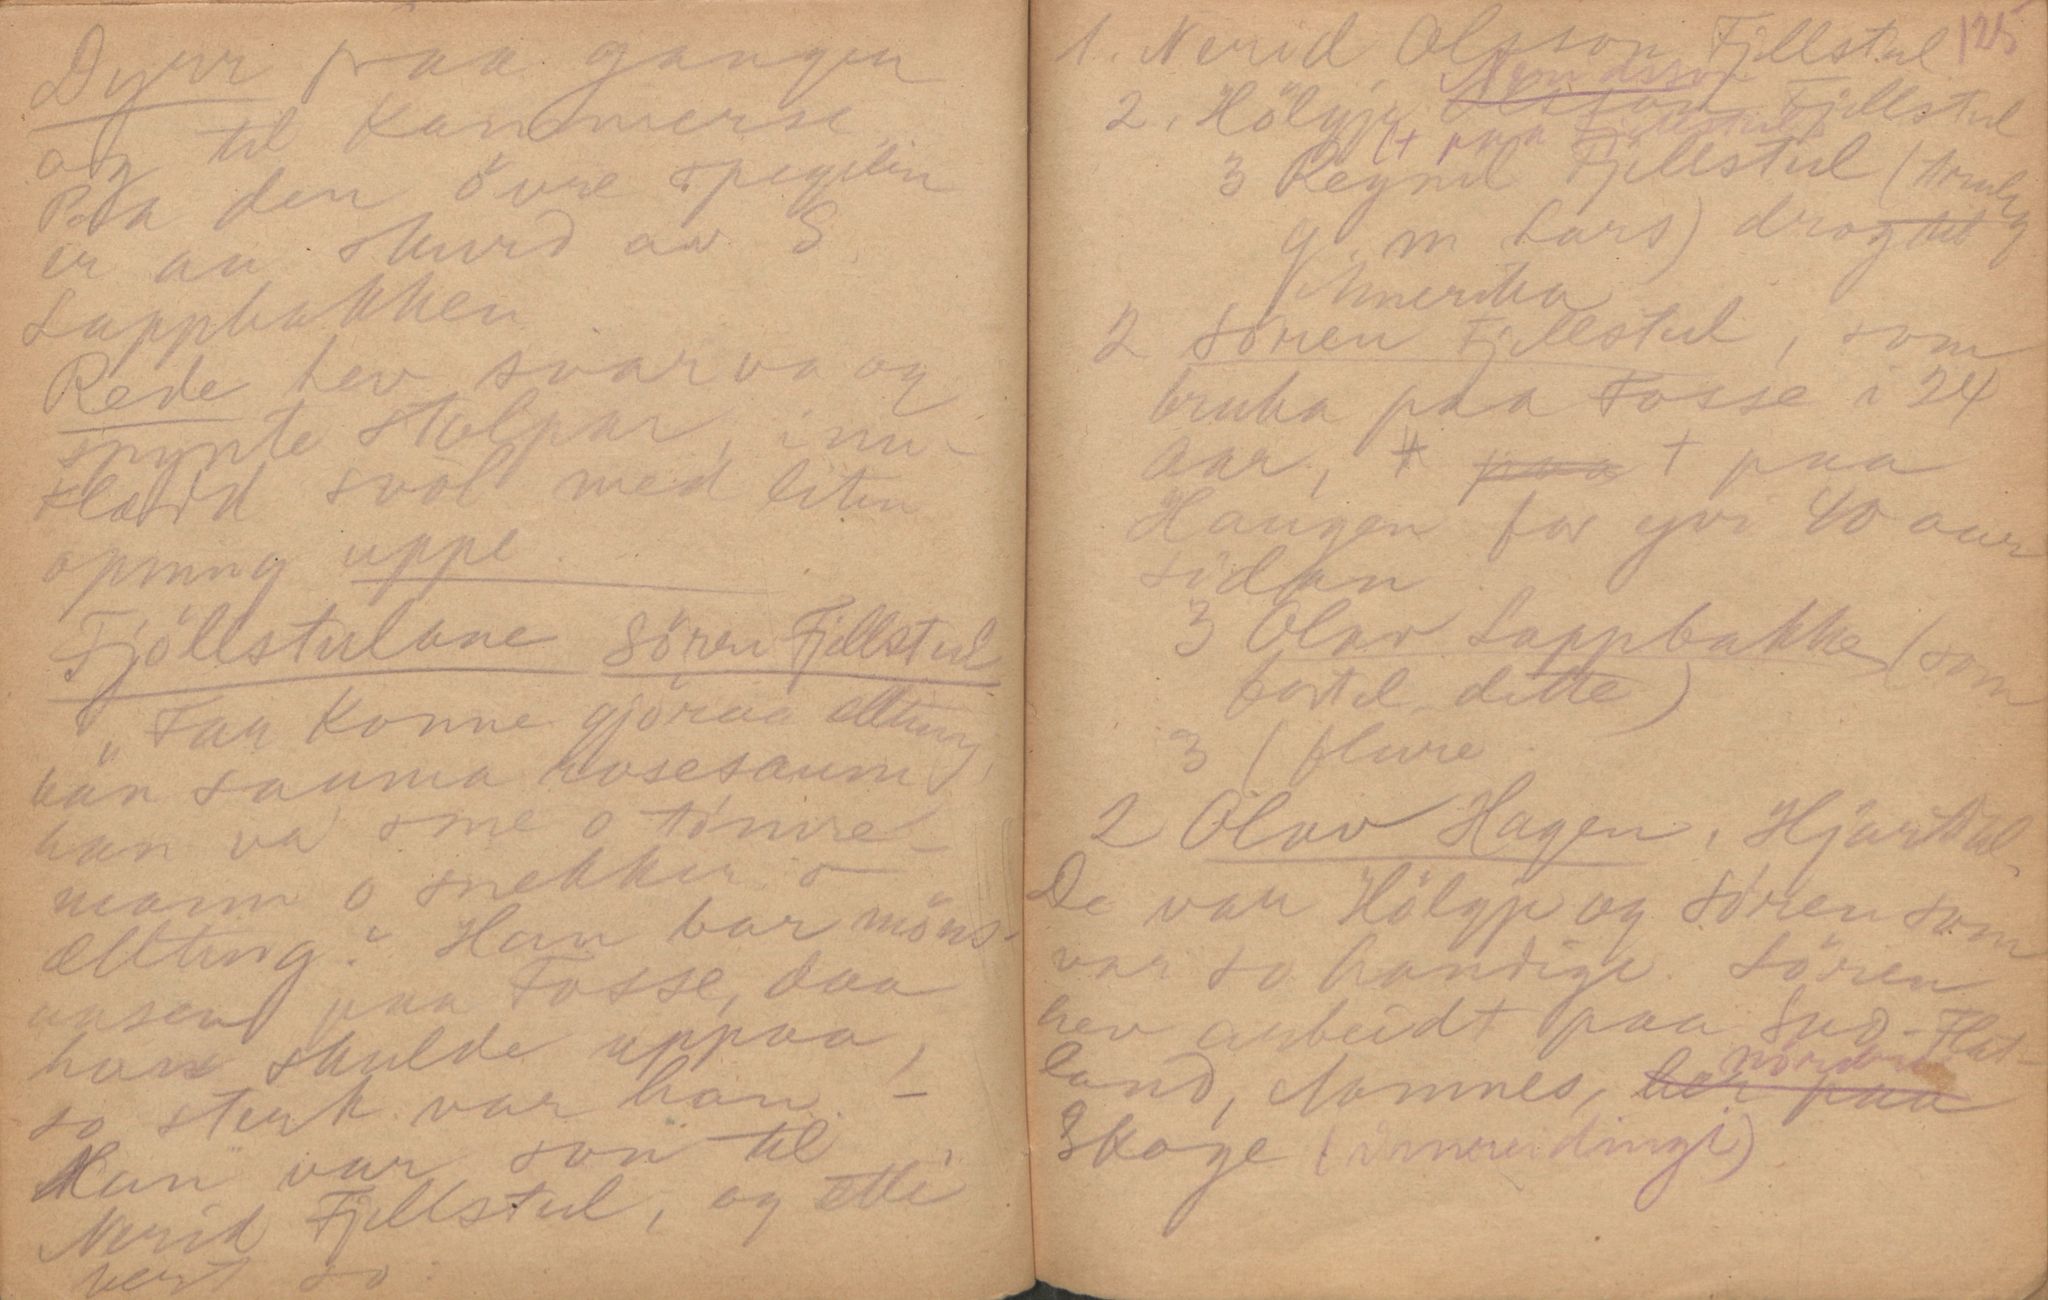 Dyrr paa gangen
og til Kammerse
Paa den övre spegilen
er aa skurd av S.
Lappbakken
Rede hev svarva og
snyrte stolpar, inn-
sval med liten
opning uppe.
Fjöllstulane Sören Fjellstul
"Faa konne gjöraa allting,
hån sauma rosesaum
han va sme o tömre-
mann o snekker o
allting." Han bar möns-
aasen paa Fosse, daa
han skulde uppaa,
so sterk var han. –
Han var son til
Nerid Fjellstul, og ætti
vert so:
125
1. Nerid Olsson Fjellstul
Neridsson
2. Hölgje Olsson Fjellstul
(+ paa Fjellstul)
3 Regnil Fjellstul (
g. m Lars) drog til
Amerika
2 Sören Fjellstul, som
bruka paa Fosse i 24
aar, + paa + paa
Haugen for yvi 40 aar
sidan
3 Olav Lappbakke (som
fortel dette)
3 ( fleire
2 Olav Hagen, Hjartdal.
De var Hölgje og Sören som
var so handige. Sören
hev arbeidt paa Sud-Flat-
land, Nomnes,
nordre
her paa
Skoge (innreidingi)